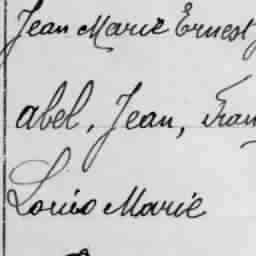 Jean Marie Ernest
abel, Jean, Fran
Louis Marie